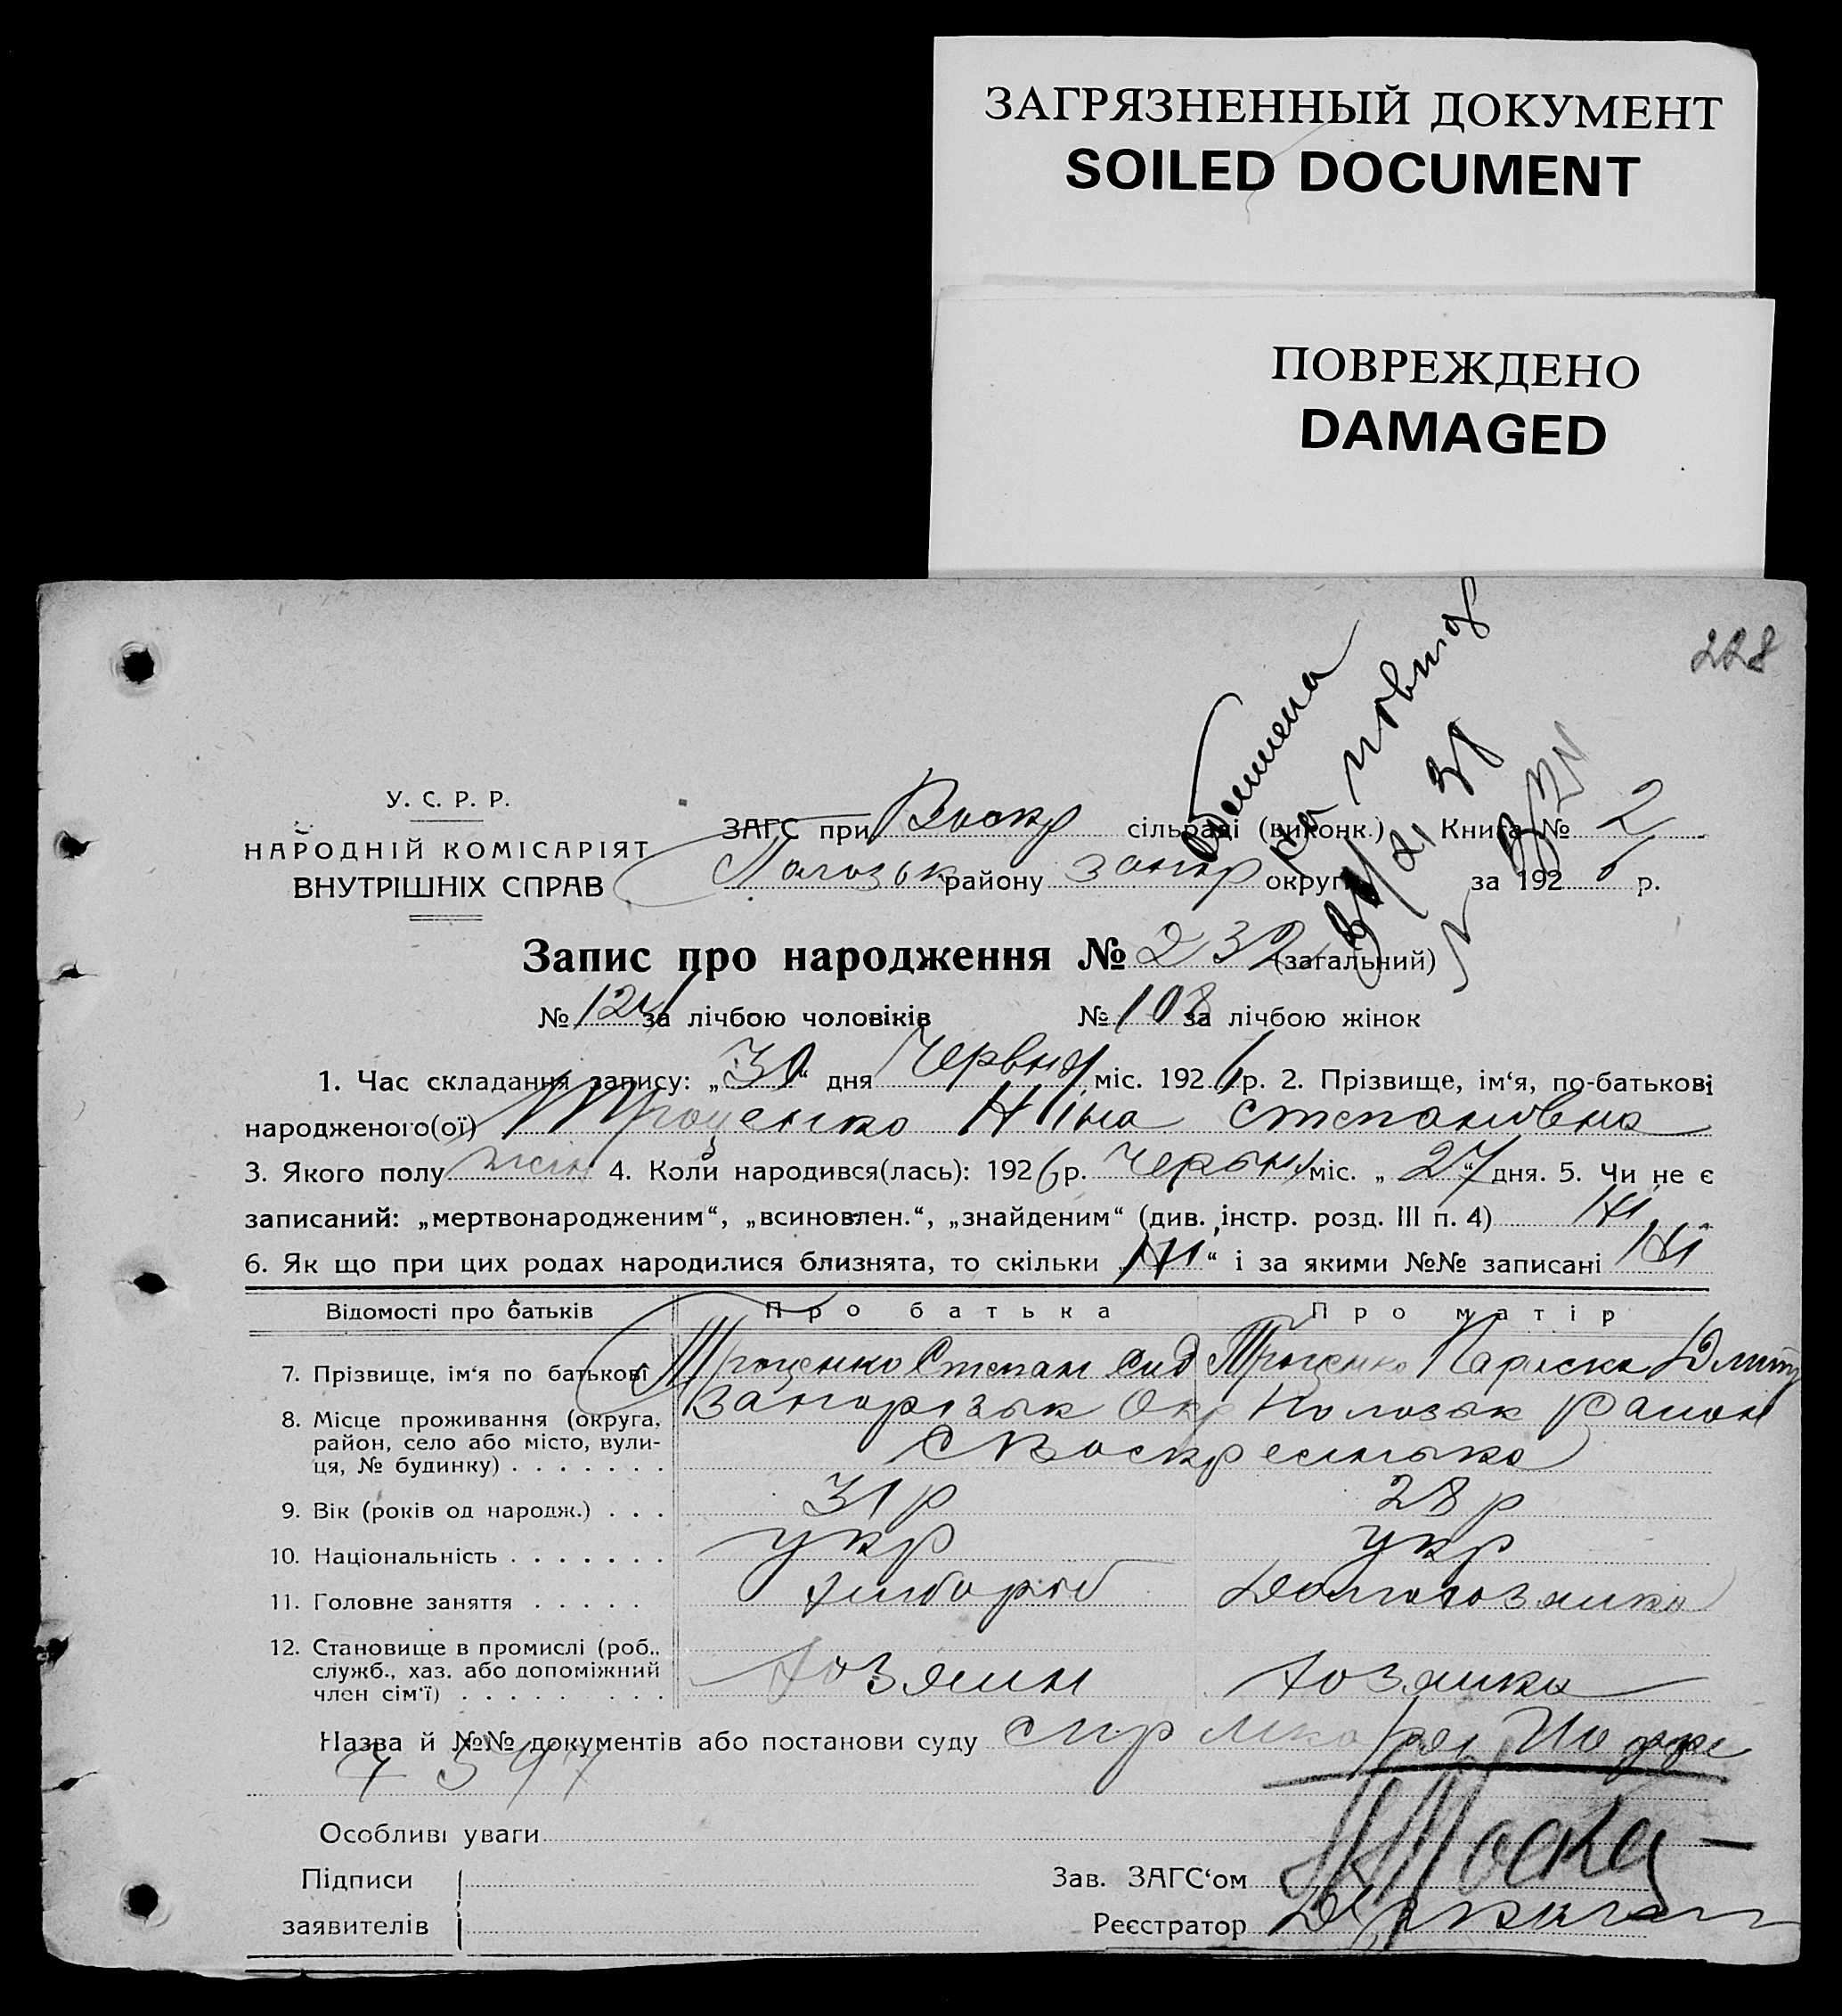 ЗАГРЯЗНЕННЫЙ ДОКУМЕНТ
SOILED DOCUMENT
ПОВРЕЖДЕНО
DAMAGED
228
У. С. Р. Р.
НАРОДНІЙ КОМІСАРІЯТ
ВНУТРІШНІХ СПРАВ
ЗАГС при Воскр сільраді (виконк.) Книга № 2
району Запор округи за 1926 р.
Запис про народження № 232 (загальний)
№ 124 за лічбою чоловіків № 108 за лічбою жінок
1. Час складання запису: „30“ дня Червня міс. 1926 р. 2. Прізвище, ім‘я, по-батькові
народженого(ої) Троценко Ніна Степановна
3. Якого полу жін 4. Коли народився(лась): 1926 р. Червня міс. „27“ дня. 5. Чи не є
записаний: „мертвонародженим“, „всиновлен.“, „знайденим“ (див. інстр. розд. III п. 4) Ні
6. Як що при цих родах народилися близнята, то скільки „Ні“ і за якими №№ записані Ні
Відомості про батьків Про батька Про матір
7. Прізвище, ім‘я по батькові Троценко Степан Сид Троценко Параска Дмит
8. Місце проживання (округа, район, село або місто, вулиця, № будинку) Запорізьк Окр Район
С Воскресенька
9. Вік (років од народж.) 31 р 28 р
10. Національність укр укр
11. Головне заняття хлібороб Домохозяйка
12. Становище в промислі (роб., служб., хаз. або допоміжний член сім‘ї) хозяин хозяйка
Назва й №№ документів або постанови суду
Особливі уваги
Підписи
заявителів
Зав. ЗАГС‘ом
Реєстратор